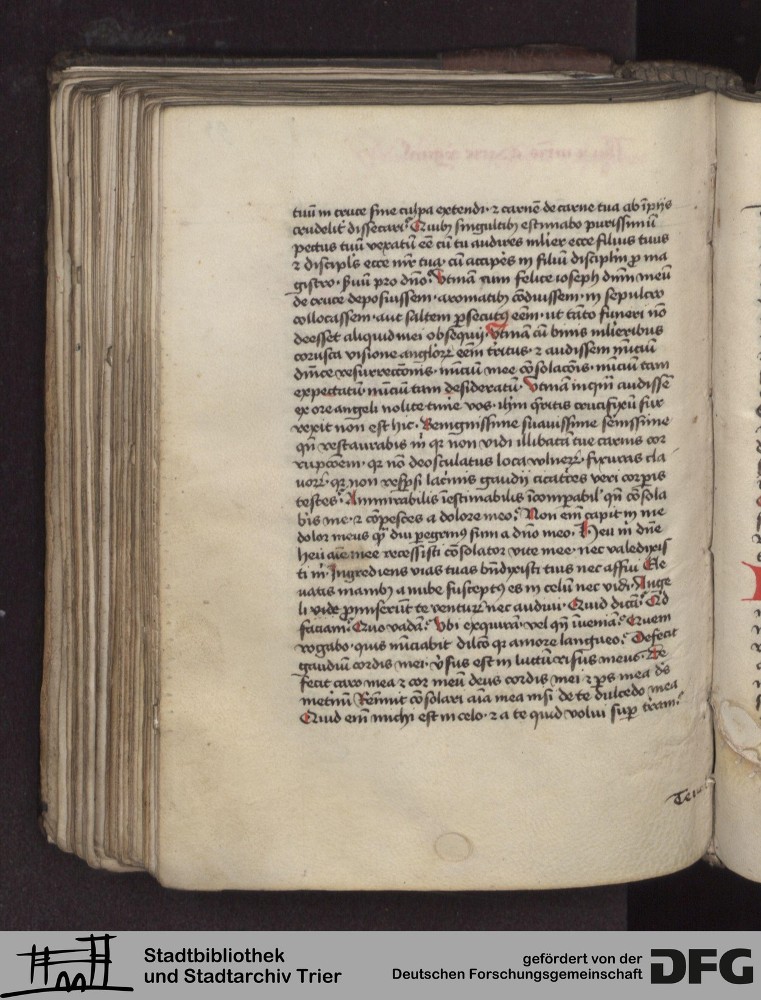 tuū in cruce sine culpa extendi · ⁊ carnē de carne tua ab īpijs
crudelit᷑ dissecari? Quibꝫ singultibꝫ estimabo purissimū
pectus tuū vexatū eē cū tu audires mlier ecce filius tuus
⁊ discipls ecce mr̄ tua · cū acciꝑes in filiū disciplm̄ ꝓ ma
gistro · ẜuū pro dn̄o? Vtinā cum felice ioseph dn̄m meū
de cruce deposuissem · aromatibꝫ cōdiuissem · in sepulcro
collocassem · aut saltem ꝑsecutꝰ eēm · ut tāto funeri nō
deesset aliquid mei obsequij · Vtinā cū binis mlieribus
corusca visione angloꝝ eēm t᷑ritus · ⁊ audissem nūciū
dn̄ice resurrecconīs · nūciū mee cōsolacōis · nūciū tam
expectatū · nūciū tam desideratū · Vtinā inqm̄ audissē
ex ore angeli nolite time vos · ihm q̄ritis crucifixū sur
rexit non est hic · Benignissime suauissime s̄enissime
qn̄ restaurabis m̄ qr non vidi illibatā tue carnis cor
rupcōem · qr nō deosculatus loca vulneꝝ · fixuras cla
uoꝝ · qr non resꝑsi lac᷑mis gaudij cicatrces veri corꝑis
testes? Ammirabilis īestimabilis īcomparabil' qn̄ cōsola
b᷑is me · ⁊ cōpesces a dolore meo? Non em̄ capit in me
dolor meus q̄ diu ꝑegrinꝰ sum a dn̄o meo · Heu m̄ dn̄e
heu aīe mee recessisti cōsolator vite mee · nec valedixis
ti m̄ · Ingrediens vias tuas bn̄dixisti tuis nec affui · Ele
uatis manibꝫ a nube susceptꝰ es in celū nec vidi · Ange
li vide ꝓmiserūt te venturū nec audiui · Quid dicā? Qd
faciam? Quo vadā? Vbi exquirā · vel qn̄ iueniā? Quem
rogabo · quis nūciabit dilcō qr amore langueo? Defecit
gaudiū cordis mei · v᷑sus est in luctū risus meus · De
fecit caro mea ⁊ cor meū deus cordis mei ⁊ ps mea ds̄
inet᷑nū Rēnuit cōsolari aīa mea nisi de te dulcedo mea
Quid em̄ michi est in celo · ⁊ a te quid volui suꝑ tr̄am?
Stadtbibliothek
und Stadtarchiv Trier
gefördert von der
Deutschen Forschungsgemeinschaft
DFG